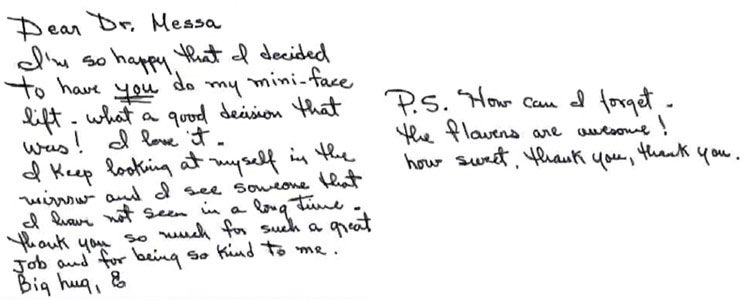 Dear Dr. Messa
I'm so happy that I decided
to have you do my mini-face
lift - what a good decision that
was! I love it -
I keep looking at myself in the
mirror and I see someone that
I have not seen in a long time -
thank you so much for such a great
job and for being so kind to me.
Big hug,
P.S. How can I forget -
the flavers are awesome!
how sweet, thank you, thank you.